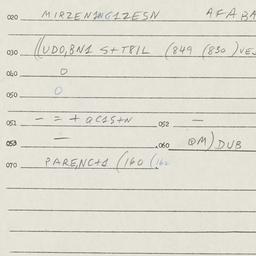 020 MIRZEN1NG1ZESN AFABA
030 ((UDO,BN1 S+T8IL (849 (850 )VEJ
040 O
050 O
051 - = + QC1S+N 052 —
053 — .060 @M) DUB
070 PARENC+1 (160 (160